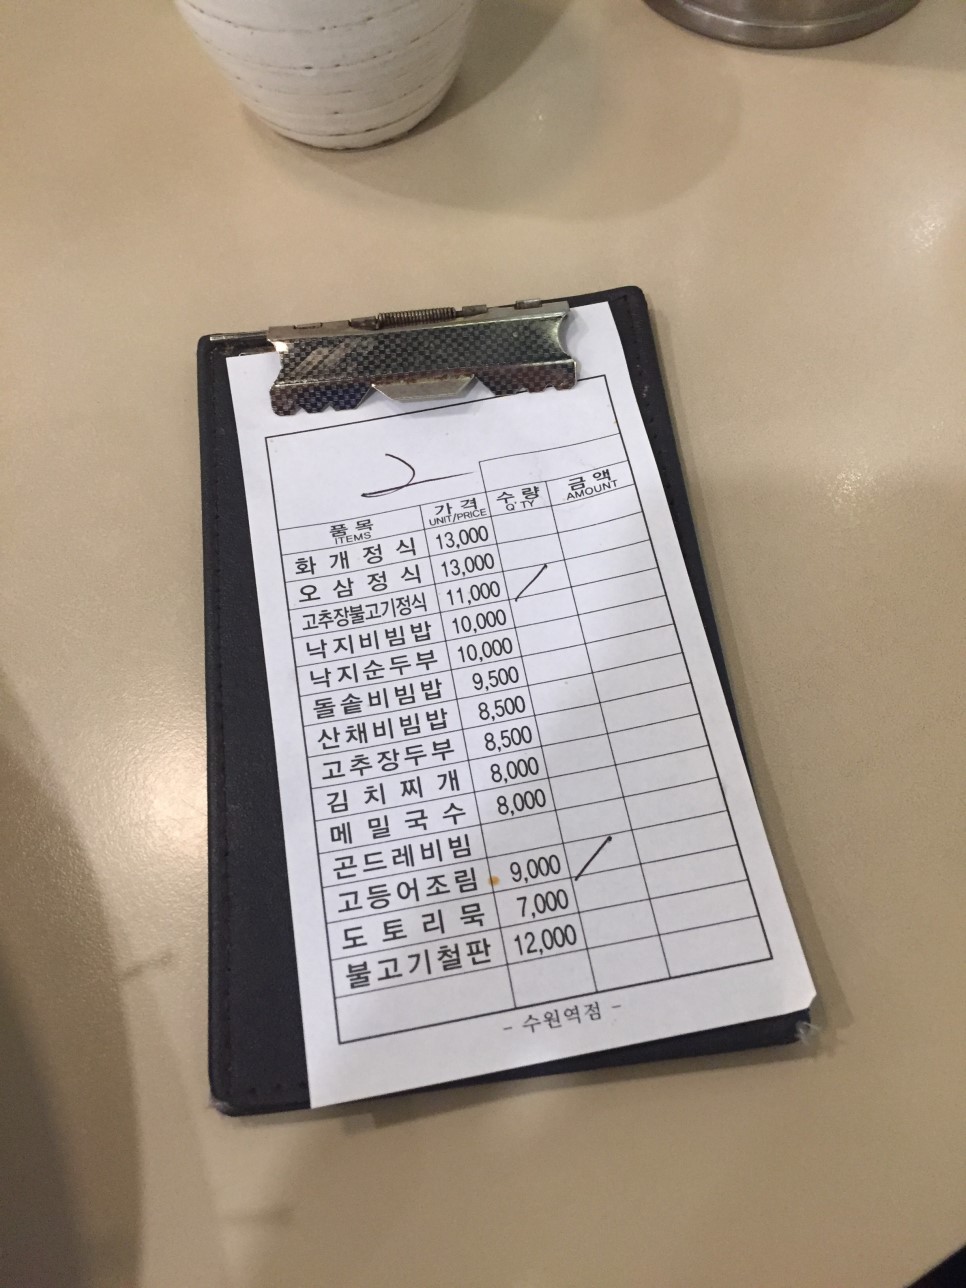 2
품목 가격 수량 금액
ITEMS UNIT/PRICE Q'TY AMOUNT
화개정식 13,000
오삼정식 13,000
고추장불고기정식 11,000 /
낙지비빔밥 10,000
낙지순두부 10,000
돌솥비빔밥 9,500
산채비빔밥 8,500
고추장두부 8,500
김치찌개 8,000
메밀국수 8,000
곤드레비빔
고등어조림 9,000 /
도토리묵 7,000
불고기철판 12,000
- 수원역점 -